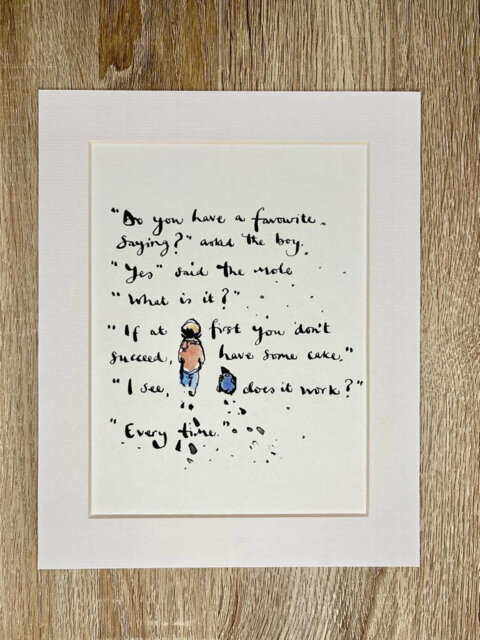 "Do you have a favourite
saying?" asked the boy.
"Yes" said the mole
"What is it?"
"If at first you don't
succeed, have some cake."
"I see, does it work?"
"Every time."